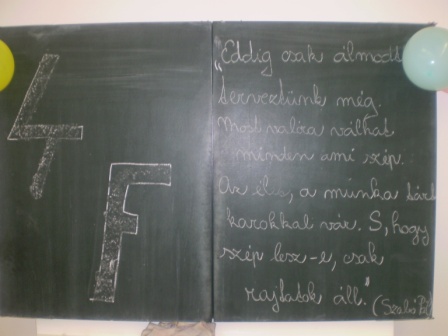 4
F
„Eddig csak álmodt
terveztünk még.
Most valóra válhat
minden ami szép.
Az élet, a munka tárt
karokkal vár. S, hogy
szép lesz-e, csak
rajtatok áll."
(Szabó